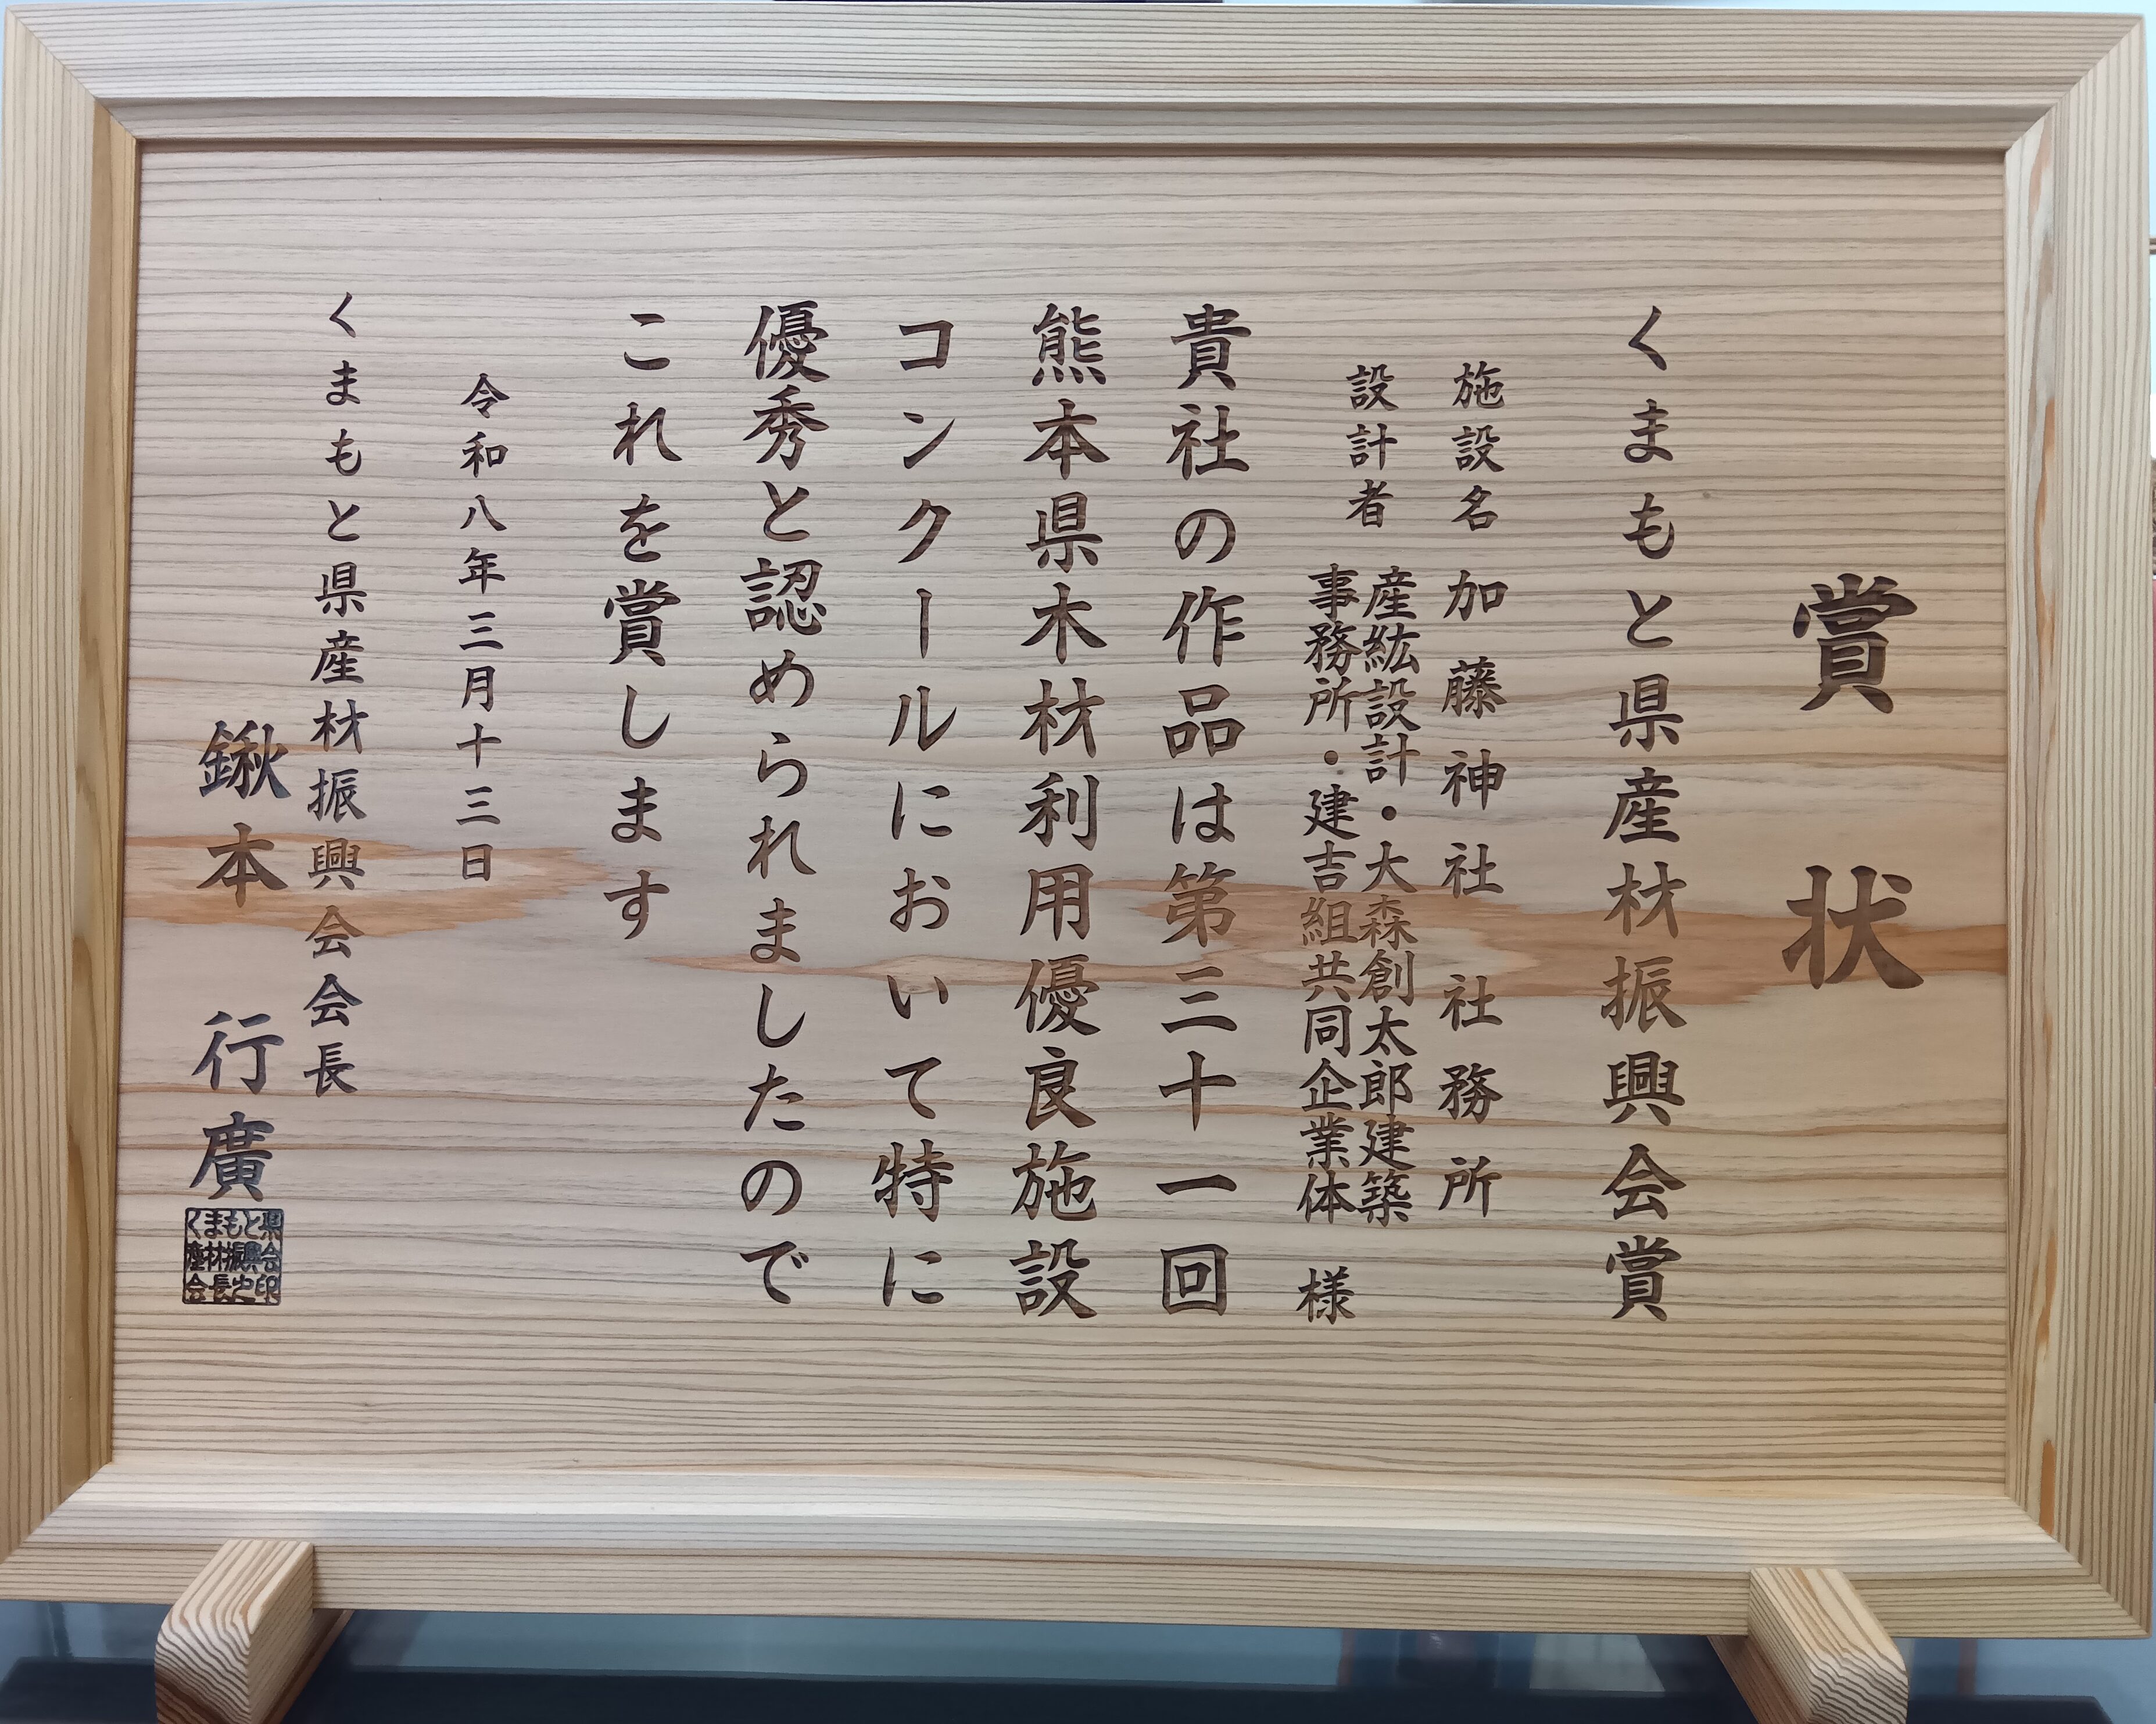 賞状
くまもと県産材振興会賞
施設名 加藤神社 社務所
設計者 産紘設計・大森創太郎建築
事務所・建吉組共同企業体 様
貴社の作品は第三十一回
熊本県木材利用優良施設
コンクールにおいて特に
優秀と認められましたので
これを賞します
令和八年三月十三日
くまもと県産材振興会会長
鍬本 行廣
くまもと県
産材振興会
会長之印